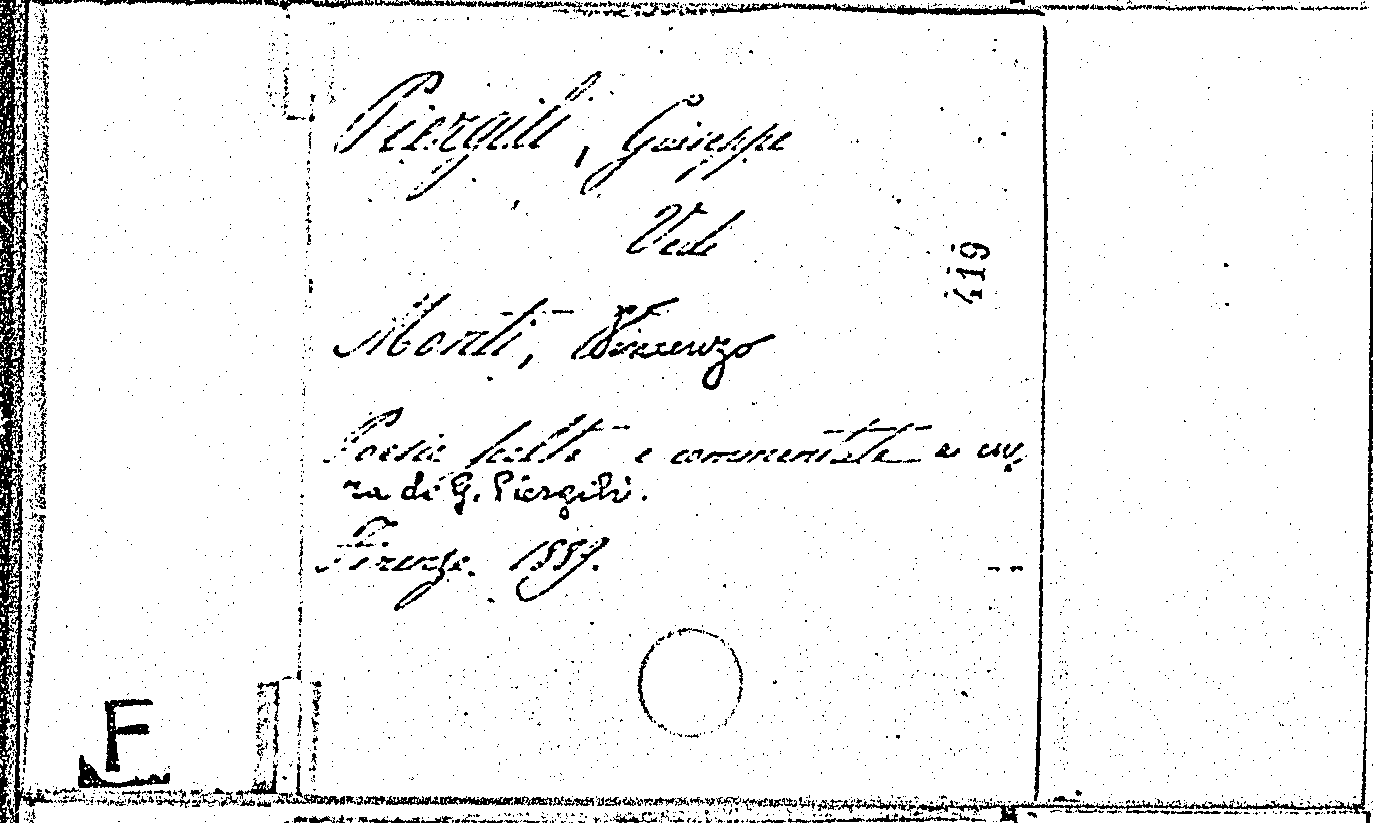 Piergili, Giuseppe
Vedi
Monti, Vincenzo
Poesie scelte e commentate a cu
ra di G. Piergili.
Firenze. 1889.
419
F